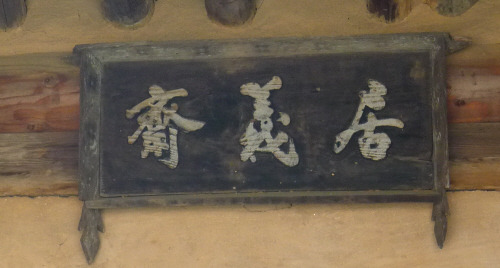 居義齋